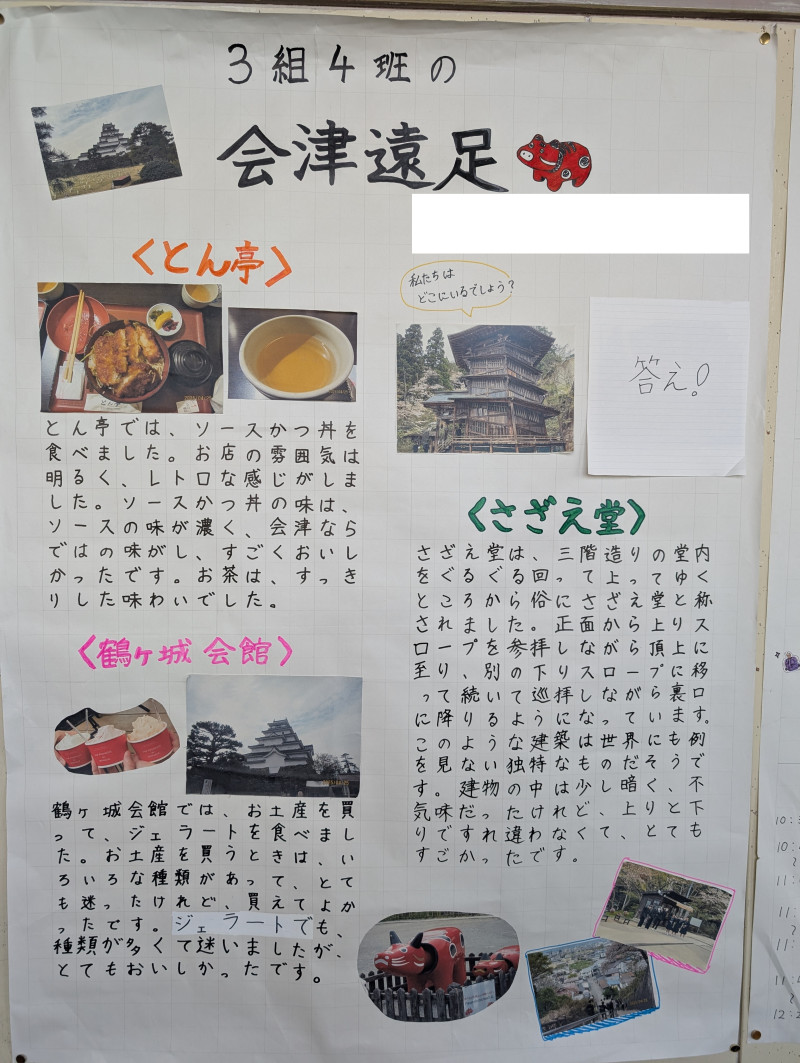 3組4班の
会津遠足
〈とん亭〉
とん亭では、ソースかつ丼を
食べました。お店の雰囲気は
明るく、レトロな感じがしま
した。ソースかつ丼の味は、
ソースの味が濃く、会津なら
ではの味がし、すごくおいし
かったです。お茶は、すっき
りした味わいでした。
〈鶴ヶ城会館〉
鶴ヶ城会館では、お土産を買
って、ジェラートを食べまし
た。お土産を買うときは、い
ろいろな種類があって、とて
も迷ったけれど、買えてよか
ったです。ジェラートでも、
種類が多くて迷いましたが、
とてもおいしかったです。
私たちは
どこにいるでしょう?
答え!
〈さざえ堂〉
さざえ堂は、三階造りの堂内
をぐるぐる回って上ってゆく
ところから俗にさざえ堂と称
されました。正面から上りス
ロープを参拝しながら頂上に
至り、別の下りスロープに移
って続いて巡拝しながら裏口
に降りるようになっています。
このような建築は世界にも例
を見ない独特なものだそうで
す。建物の中は少し暗く、不
気味だったけれど、上りと下
りですれ違わなくて、とても
すごかったです。